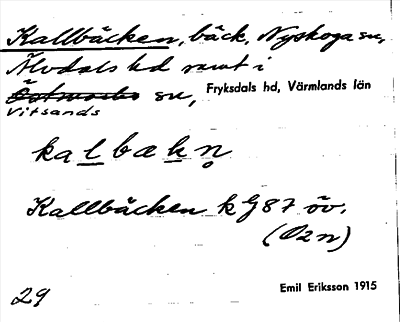 Kallbäcken, bäck, Nyskoga sn,
Älvdals hd samt i
Östmarks sn, Fryksdals hd, Värmlands län
Vitsands
kalbækn̥
Kallbäcken kG87 öv.
(O2n)
29 Emil Eriksson 1915